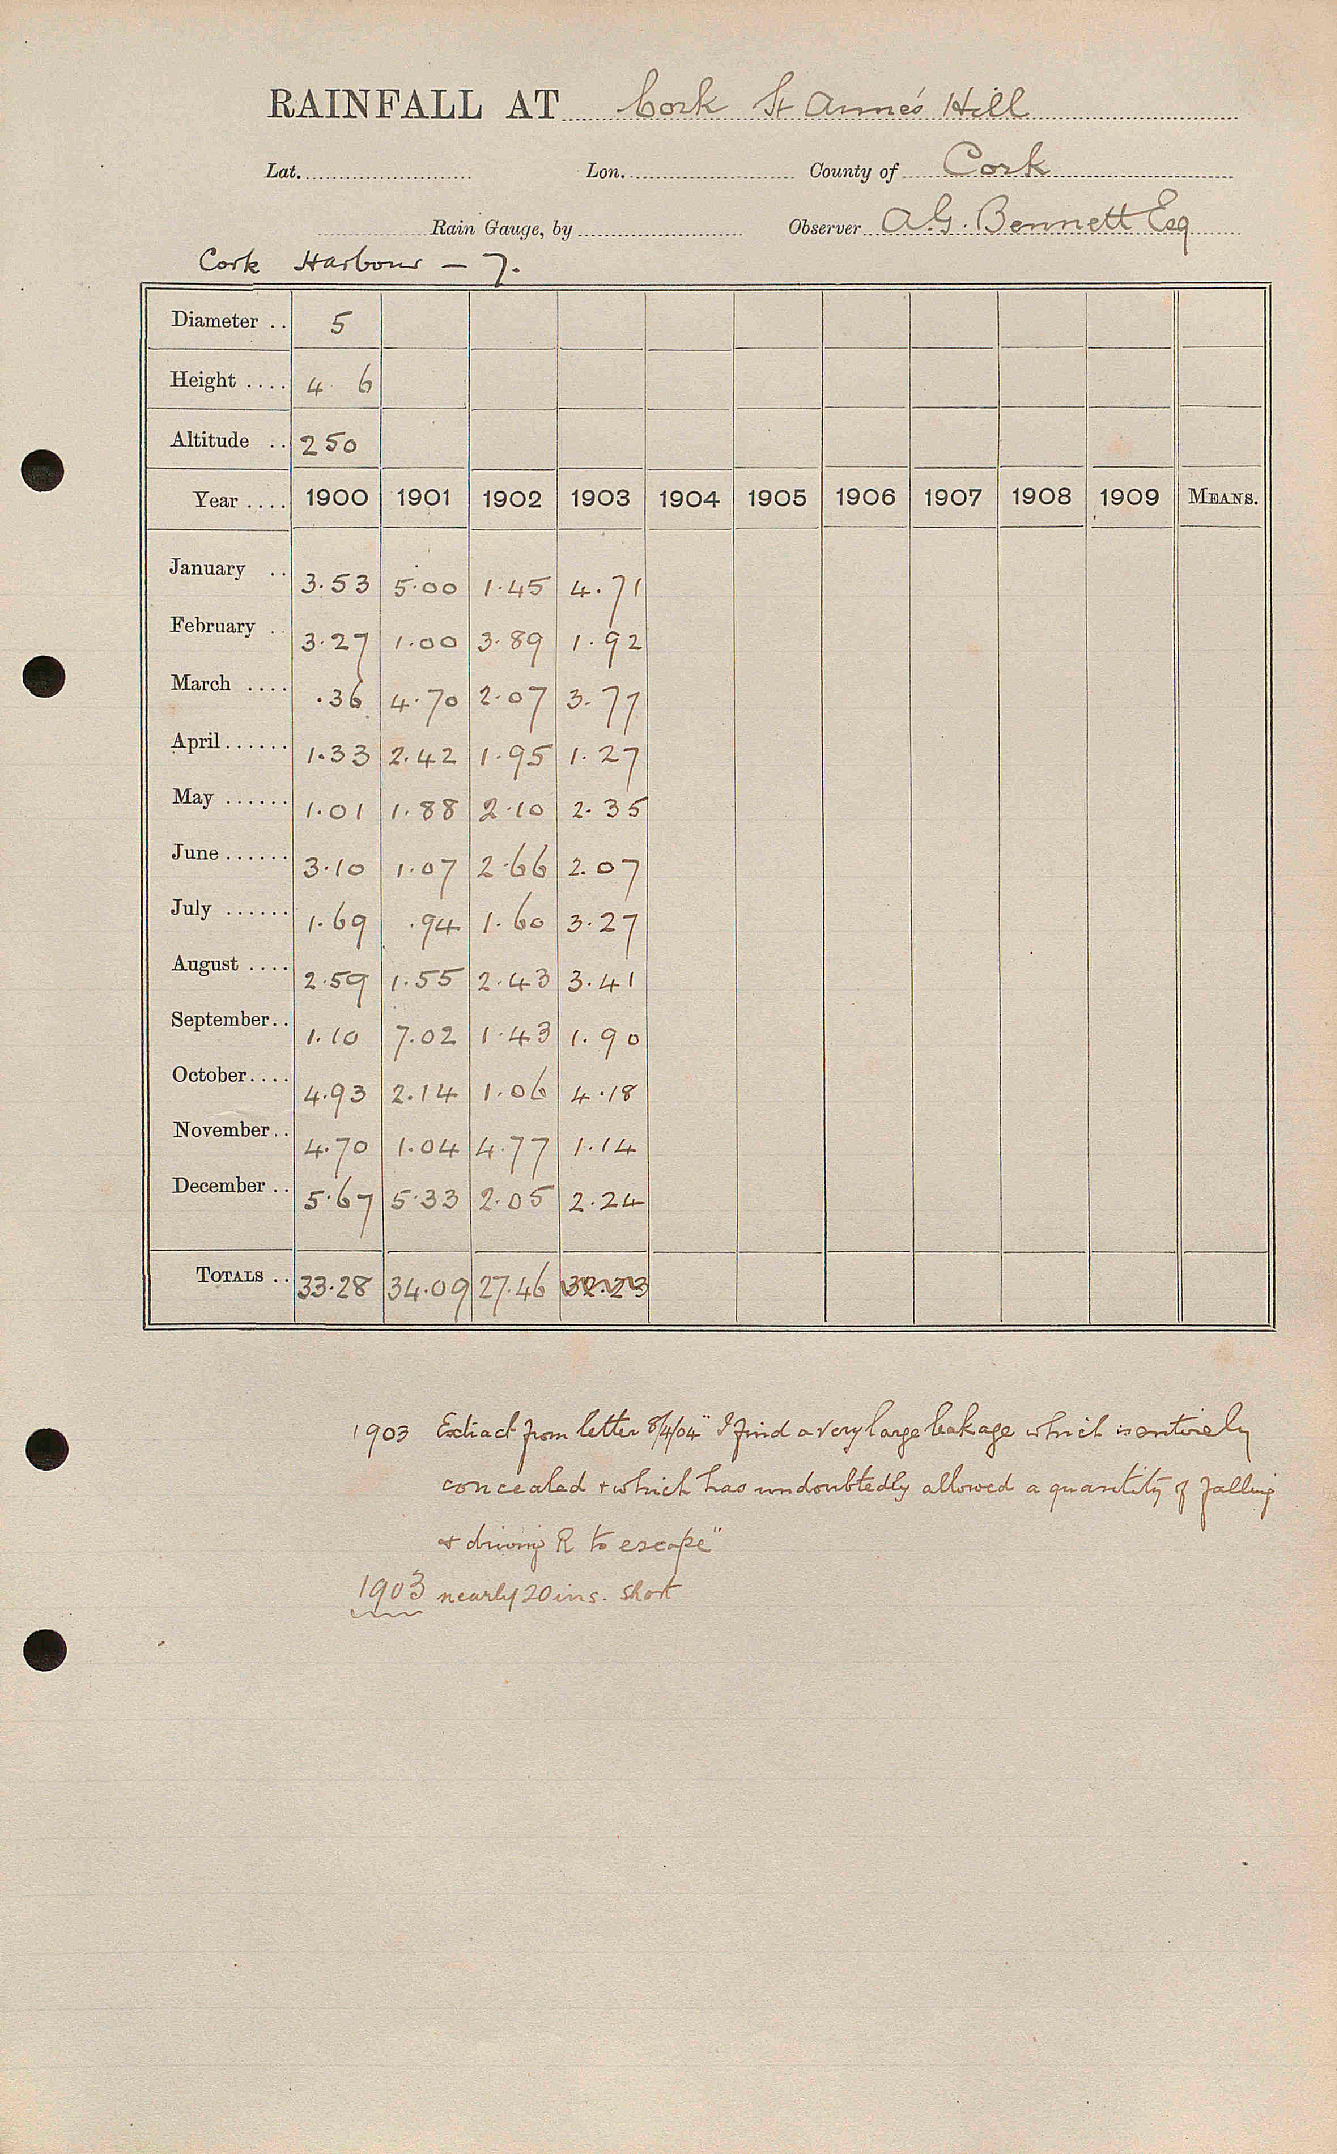 RAINFALL AT Cork St Anne's Hill
Lat. Lon. County of Cork
Rain Gauge, by Observer A.G. Bennett Esq
Cork Harbour – 7.
Diameter .. 5
Height .... 4 6
Altitude .. 250
Year .... 1900 1901 1902 1903 1904 1905 1906 1907 1908 1909 MEANS.
January .. 3.53 5.00 1.45 4.71
February .. 3.27 1.00 3.89 1.92
March .... .36 4.70 2.07 3.77
April...... 1.33 2.42 1.95 1.27
May ...... 1.01 1.88 2.10 2.35
June...... 3.10 1.07 2.66 2.07
July ...... 1.69 .94 1.60 3.27
August .... 2.59 1.55 2.43 3.41
September.. 1.10 7.02 1.43 1.90
October.... 4.93 2.14 1.06 4.18
November.. 4.70 1.04 4.77 1.14
December .. 5.67 5.33 2.05 2.24
TOTALS .. 33.28 34.09 27.46 32.23
1903 Extract from letter 8/4/04 "I find a very large leakage which is entirely
concealed + which has undoubtedly allowed a quantity of falling
+ driving R to escape"
1903 nearly 20 ins. short